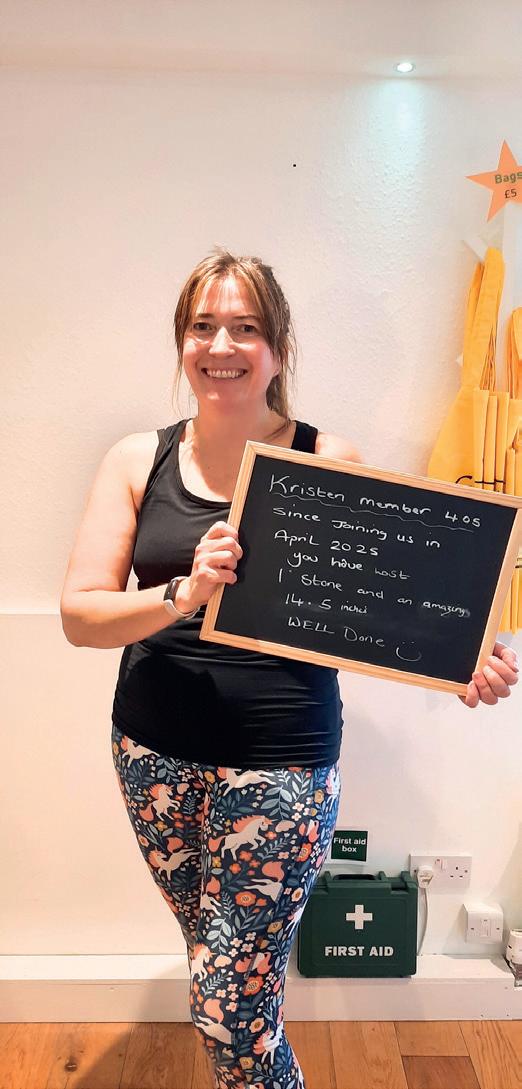 Bags
£5
Kristen member 405
since Joining us in
April 2025
you have lost
1 Stone and an amazing
14.5 inches
WELL Done
First aid
box
FIRST AID